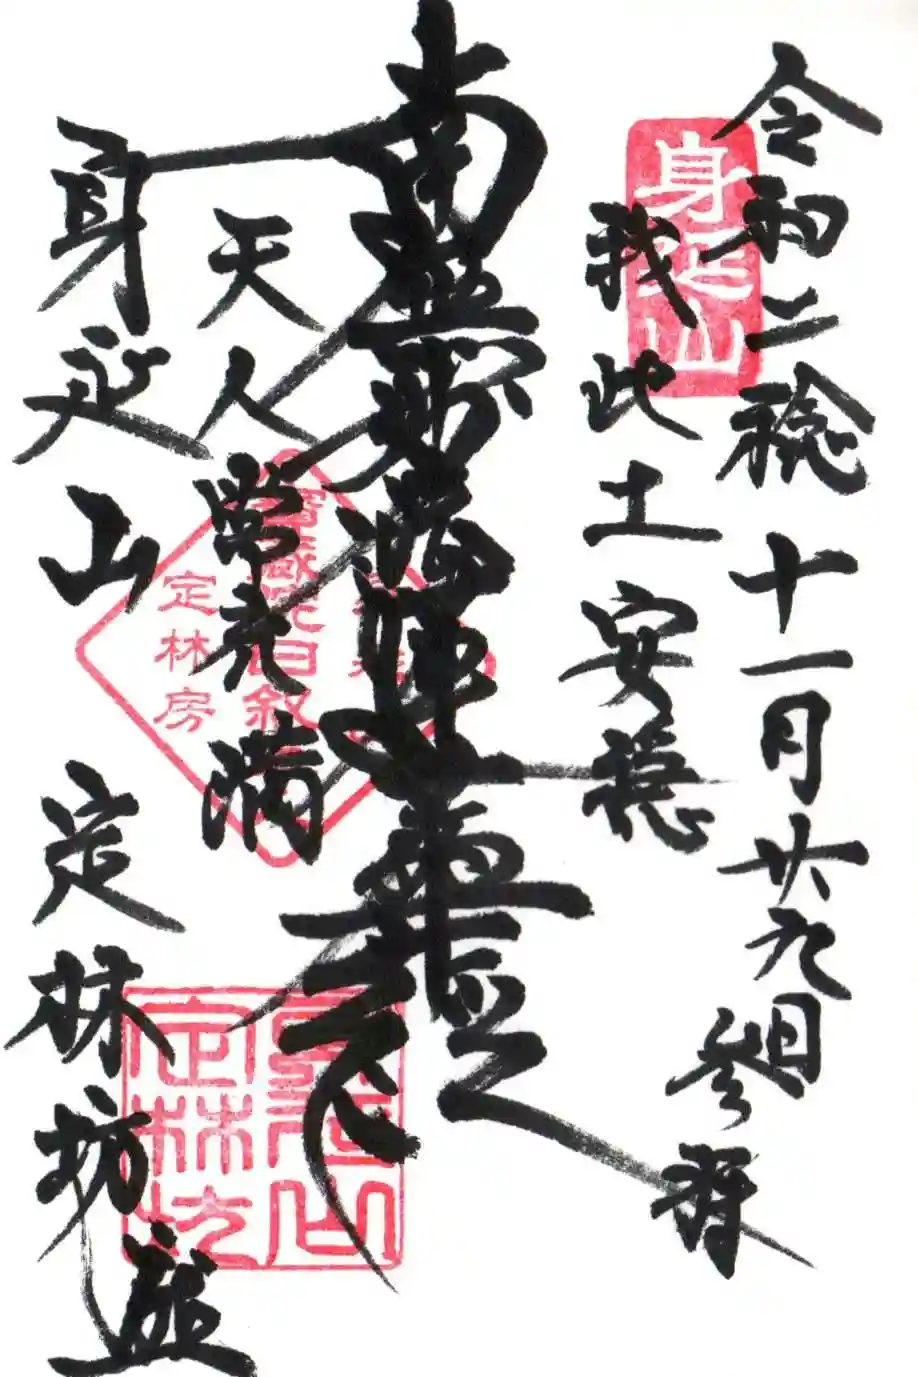 令和二稔十一月廿九日参拝
身延山
我此土安穏
南無妙法蓮華経
天人常充満
定林房
身延山 定林坊
身延山定林坊